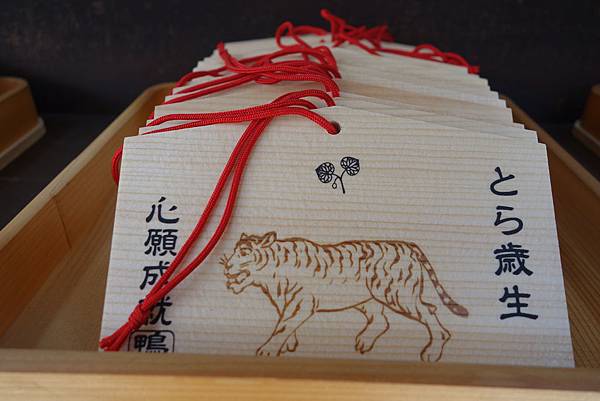 とら歳生
心願成就
鴨